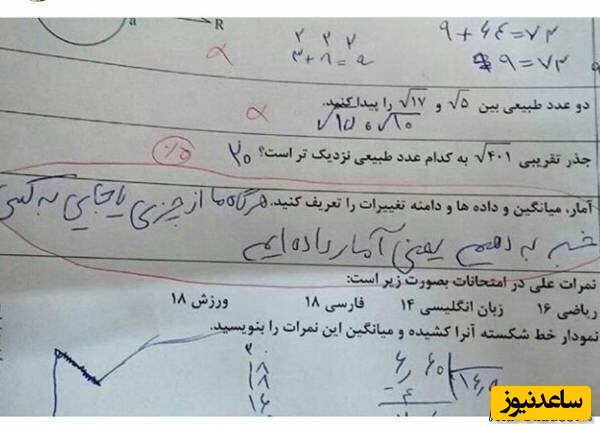 a
R
۹ + ۶۴ = ۷۳
۳ + ۸ = ۹
۹ = ۷۳
دو عدد طبیعی بین √۵ و √۱۷ را پیدا کنید.
√۱۵ و √۱۰
جذر تقریبی √۴۰۱ به کدام عدد طبیعی نزدیک تر است؟ ۲۰
آمار، میانگین و داده ها و دامنه تغییرات را تعریف کنید. هرگاه ما از چیزی یا جایی به کسی
خبر بدهیم یعنی آمار داده ایم
نمرات علی در امتحانات بصورت زیر است:
ریاضی ۱۶ زبان انگلیسی ۱۴ فارسی ۱۸ ورزش ۱۸
نمودار خط شکسته آنرا کشیده و میانگین این نمرات را بنویسید.
۱۸
۱۸
۱۶
ساعدنیوز